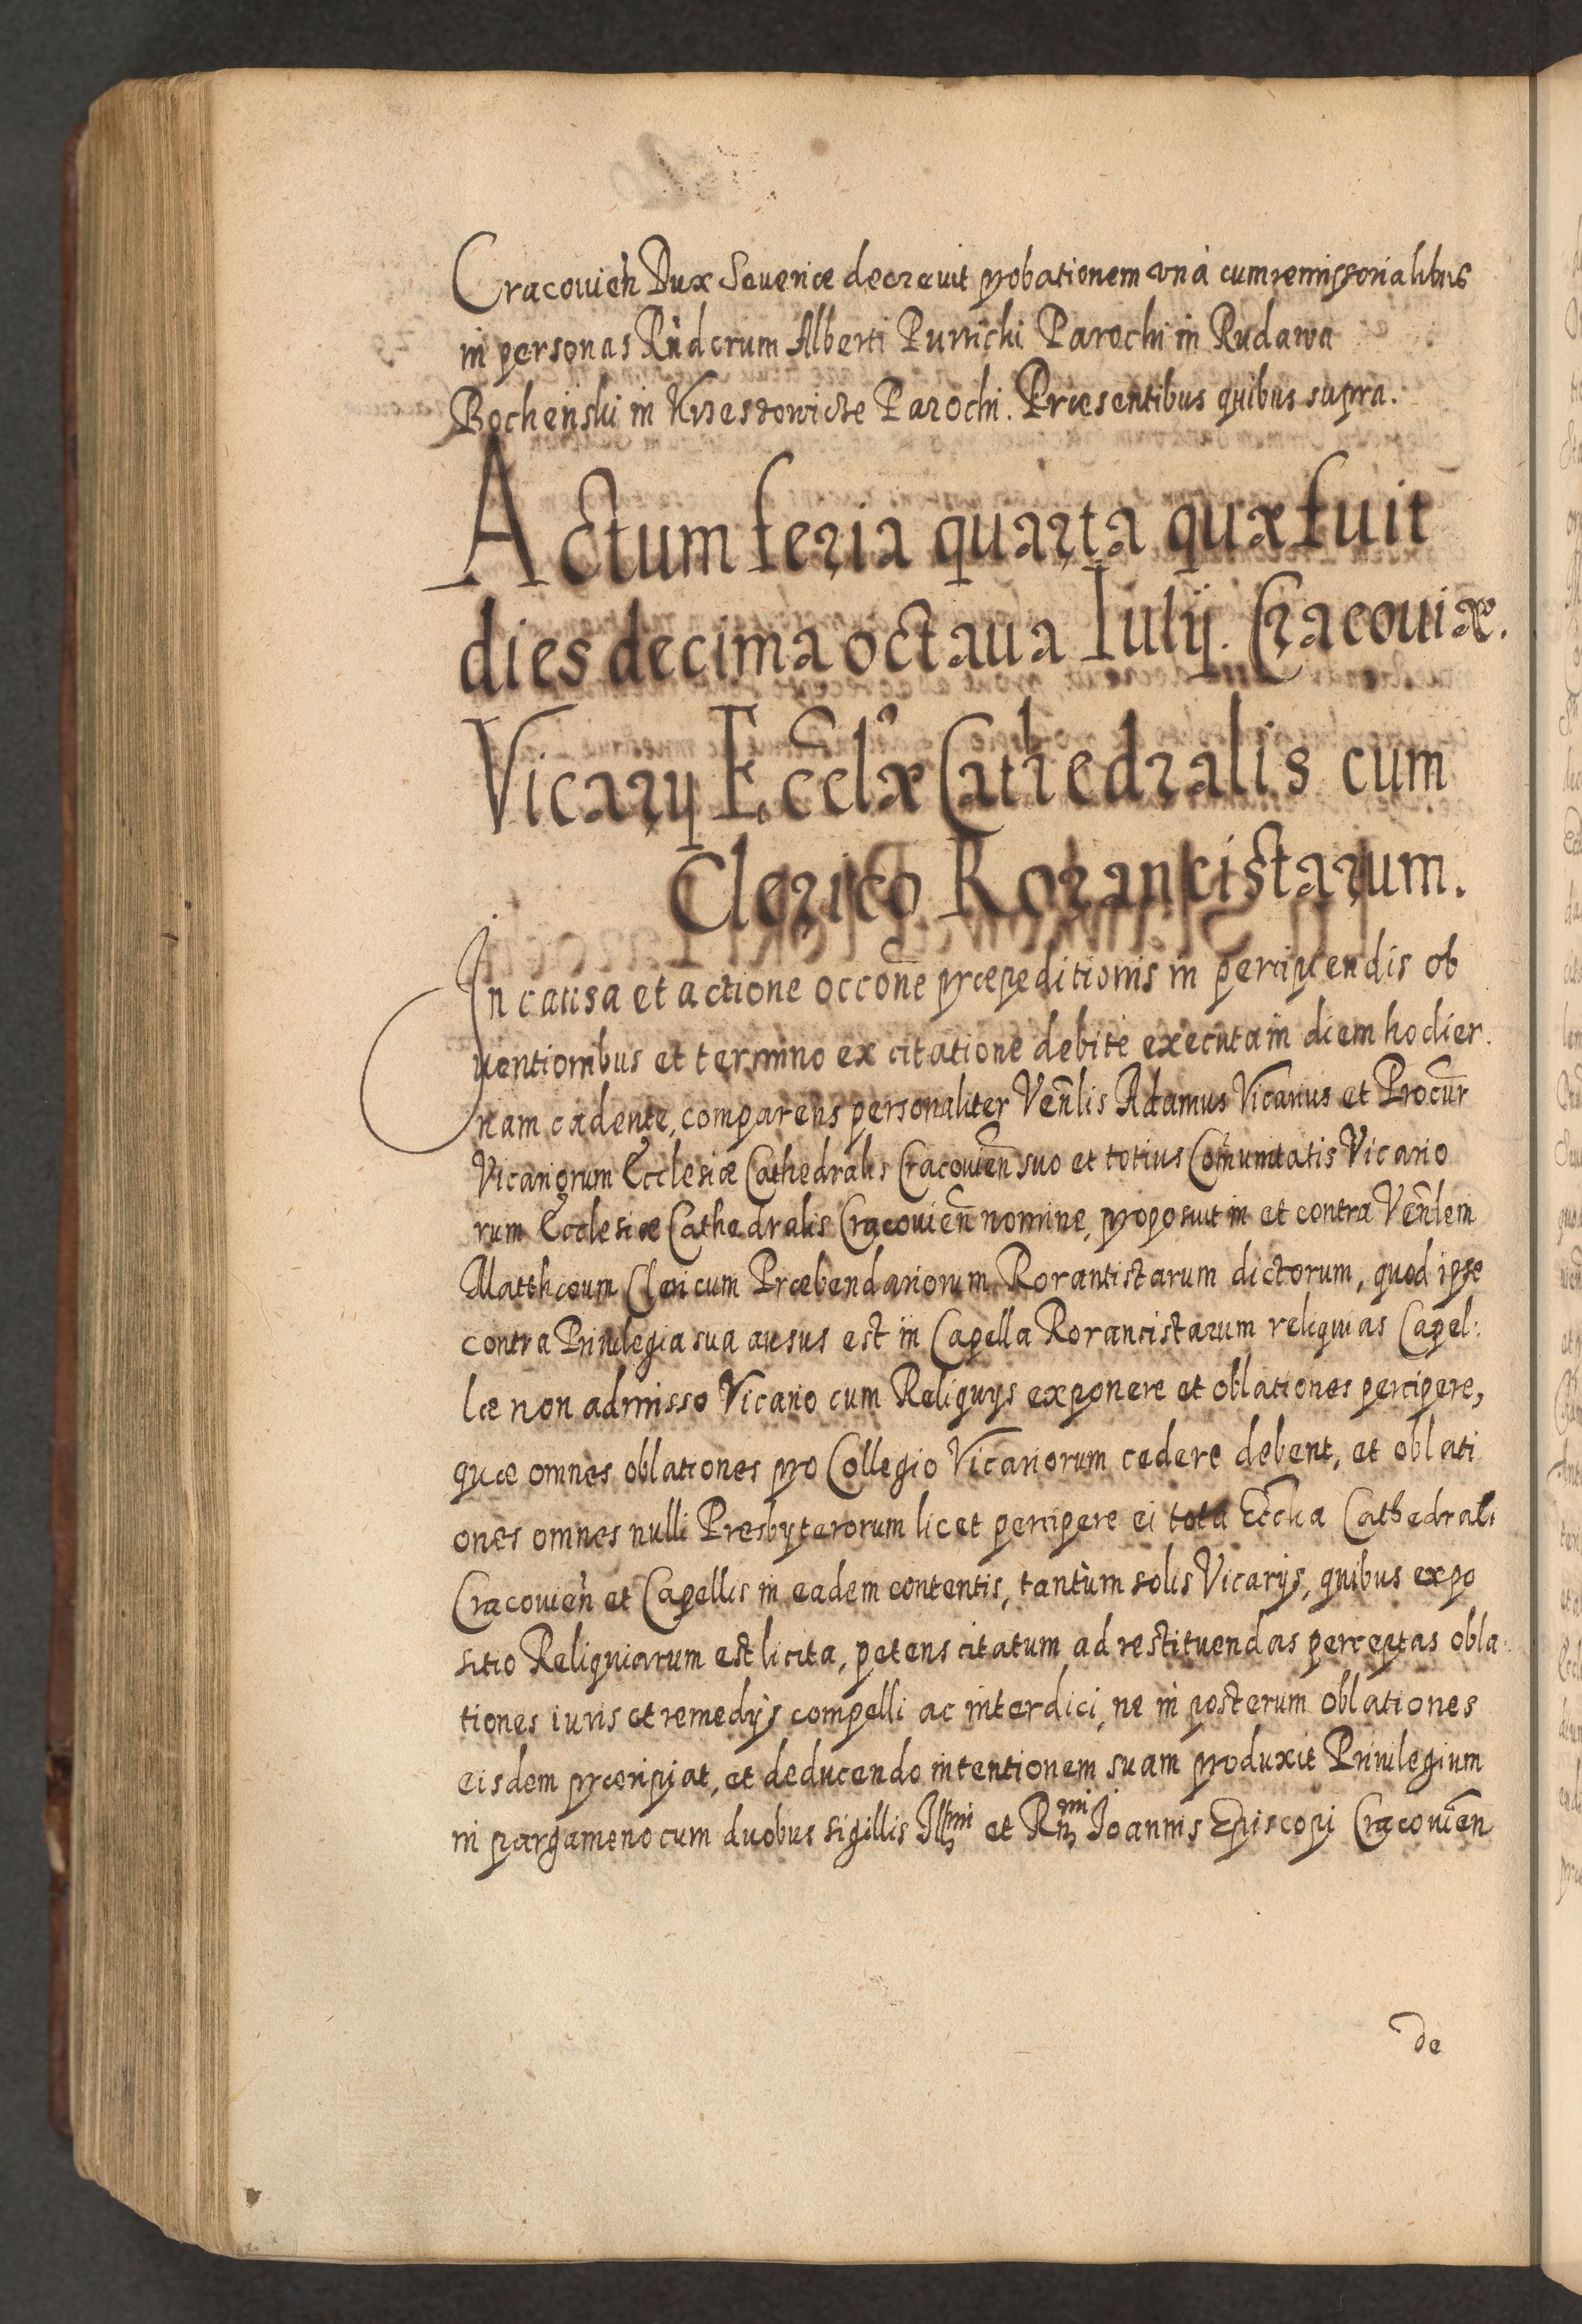 Cracouien Dux Seueriæ decreuit probationem unà cum remissorialibus
in personas Rndorum Alberti Purrichi Parochi in Rudawa
Bochenski in Krzeszowicze Parochi. Præsentibus quibus supra.
Actum feria quarta quæ fuit
dies decima octaua Iulij. Cracouiæ.
Vicarij Eccłæ Cathedralis cum
Clerico Rorantistarum.
In causa et actione occōne præpeditionis in percipiendis ob
uentionibus et termino ex citatione debitè executa in diem hodier.
nam cadente, comparens personaliter Venlis Adamus Vicarius et Procur
Vicariorum Ecclesiæ Cathedralis Cracouien suo et totius Comunitatis Vicario
rum Ecclesiæ Cathedralis Cracouien nomine, proposuit in et contra Venlem
Matthæum Clericum Præbendariorum Rorantistarum dictorum, quod ipse
contra Priuilegia sua ausus est in Capella Rorantistarum reliquias Capel:
læ non admisso Vicario cum Reliquijs exponere et oblationes percipere,
quæ omnes oblationes pro Collegio Vicariorum cedere debent, et oblati
ones omnes nulli Presbyterorum licet percipere ei tota Eccłia Cathedrali
Cracouien et Capellis in eadem contentis, tantùm solis Vicarijs, quibus expo
sitio Reliquiarum est licita, petens citatum ad restituendas perceptas obla
tiones iuris et remedijs compelli ac interdici, ne in posterum oblationes
eisdem præripiat, et deducendo intentionem suam produxit Priuilegium
in pargameno cum duobus sigillis Illmi et Rmi Joannis Episcopi Cracouien
de